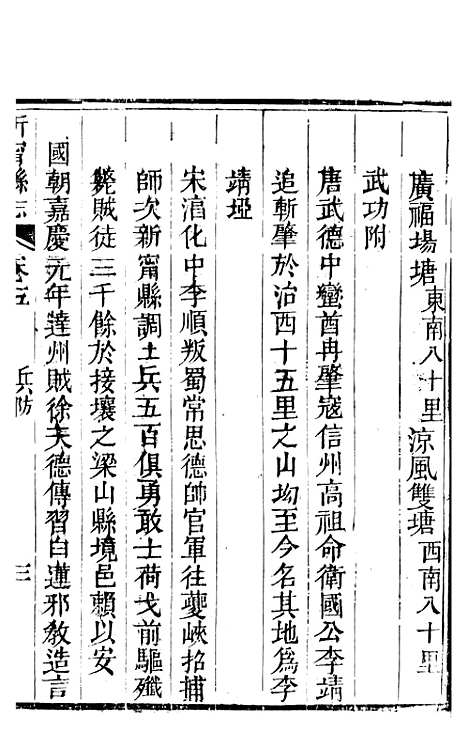 廣福場塘東南八十里涼風雙塘西南八十里
武功附
唐武德中蠻酋冉肇寇信州高祖命衛國公李靖
追斬肇於治西十五里之山坳至今名其地爲李
靖埡
宋淳化中李順叛蜀常思德帥官軍往夔峽招捕
師次新甯縣調土兵五百俱勇敢士荷戈前驅殲
斃賊徒三千餘於接壤之梁山縣境邑賴以安
國朝嘉慶元年達州賊徐天德傳習白蓮邪教造言
新甯縣志 卷五 兵防 三